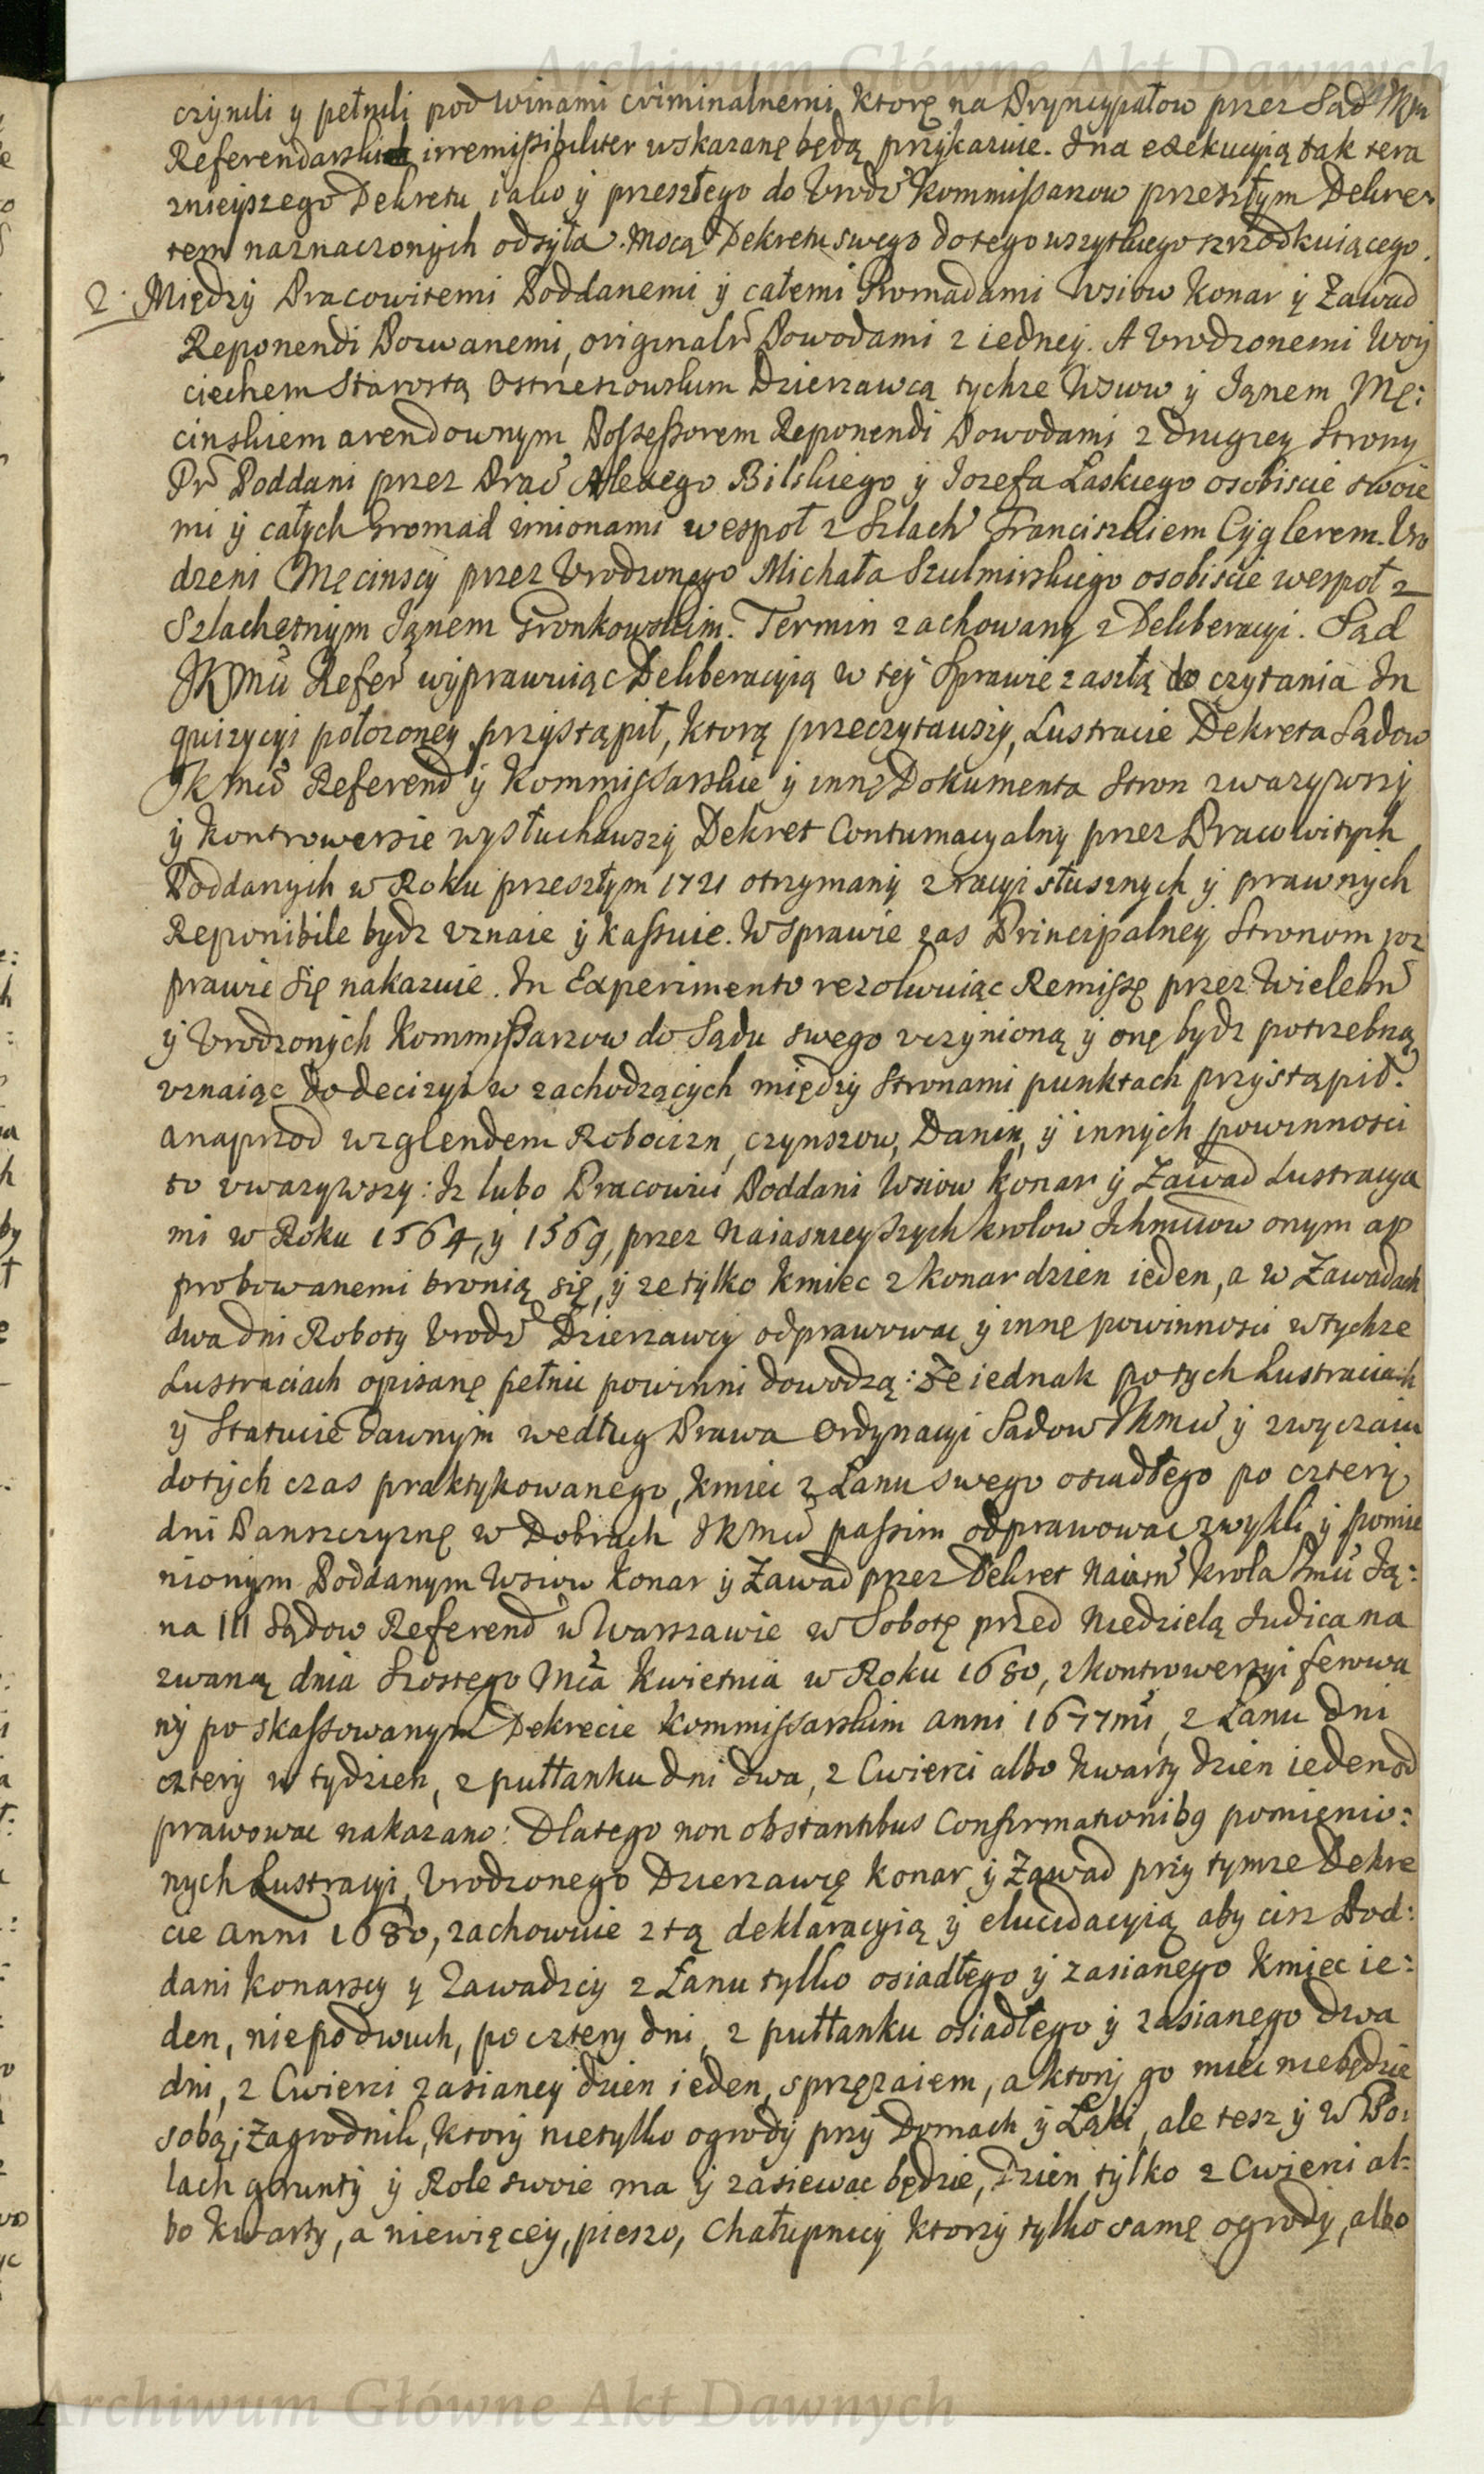 Archiwum Główne Akt Dawnych
czynili y pełnili pod winami criminalnemi, ktorę na Pryncypałow przez Sąd JKM
Referendarskich irremissibiliter wskazanę będą przykazuie. I na exekucyią tak tera
znieyszego Dekretu iako y przeszłego do Urodz Kommissarzow przeszłym Dekre-
tem naznaczonych odsyła. Mocą Dekretu swego do tego wszytkiego srzodkuiącego.
2. Między Pracowitemi Poddanemi y całemi Gromadami Wsiow Konar y Zawad
Reponendi Pozwanemi, originaln Powodami z iedney. A Urodzonemi Woy
ciechem Starostą Ostrzeszowskim Dzierzawcą tychze Wsiow y Janem Mę:
cinskiem arendownym Possessorem Reponendi Powodami z drugiey Strony
Pr Poddani przez Prac Alexego Bilskiego y Jozefa Łaskiego osobiscie swoie
mi y całych Gromad imionami wespoł z Szlach Franciszkiem Cyglerem. Uro
dzeni Męcinscy przez Urodzonego Michała Szulmirskiego osobiscie wespoł z
Szlachetnym Janem Gronkowskim. Termin zachowany z Deliberacyi. Sąd
JKMci Refer wyprawuiąc Deliberacyią w tey Sprawie zaszłą do czytania In
quizycyi połozoney przystąpił, ktorą przeczytawszy, Lustracie Dekreta Sądow
JKMci Referend y Kommissarskie y innę Dokumenta Stron zwazywszy
y kontrowersie wysłuchawszy Dekret Contumacyalny przez Pracowitych
Poddanych w Roku przeszłym 1721 otrzymany z racyi słusznych y prawnych
Reponibile bydz uznaie y kassuie. W Sprawie zas Principalney Stronom roz
prawić się nakazuie. In Experimento rezolwuiąc Remissę przez Wielebn
y Urodzonych Kommissarzow do Sądu swego uczynioną y onę bydz potrzebną
uznaiąc do decizyi w zachodzących między Stronami punktach przystąpił.
a naprzod wzglendem Robocizn, czynszow, Danin, y innych powinnosci
to uwazywszy: Iz lubo Pracowici Poddani Wsiow Konar y Zawad Lustracya
mi w Roku 1564, y 1569, przez Naiasnieyszych krolow Ichmciow onym ap
probowanemi bronią się, y ze tylko kmiec z Konar dzien ieden, a w Zawadach
dwa dni Roboty Urodz Dzierzawcy odprawowac y innę powinnosci w tychze
Lustraciach opisanę pełnic powinni dowodzą: Ze iednak po tych Lustraciach
y Statucie dawnym według Prawa Ordynacyi Sadow JKmci y zwyczaiu
dotych czas praktykowanego, kmieć z Łanu swego osiadłego po cztery
dni Panszczyznę w Dobrach JKMci passim odprawowac zwykli y pomie
nionym Poddanym Wsiow Konar y Zawad przez Dekret Naiasn krola Jmci Ja:
na III Sądow Referend w Warszawie w Sobotę przed Niedzielą Iudica na
zwaną dnia Szostego Mca Kwietnia w Roku 1680, z kontrowersyi ferowa
ny po skassowanym Dekrecie kommissarskim anni 1677mi, z Łanu dni
cztery w tydzien, z pułłanku dni dwa, z Cwierci albo kwarty dzien ieden od
prawowac nakazano: Dlatego non obstantibus Confirmationibg pomienio:
nych Lustracyi, Urodzonego Dzierzawcę Konar y Zawad przy tymze Dekre
cie anni 1680, zachowuie z tą deklaracyią y elucidacyią aby cisz Pod:
dani Konarscy y Zawadzcy z Łanu tylko osiadłego y zasianego kmiec ie:
den, nie po dwuch, po cztery dni, z pułłanku osiadłego y zasianego dwa
dni, z Cwierci zasianey dzien ieden, sprzęzaiem, a ktory go miec niebędzie
sobą; Zagrodnik, ktory nietylko ogrody przy Domach y Łąki, ale tesz y w Po:
lach grunty y Role swoie ma y zasiewac będzie, dzien tylko z Cwierci al:
bo kwarty, a niewięcey, pieszo, Chałupnicy ktorzy tylko samę ogrody, albo
Archiwum Główne Akt Dawnych